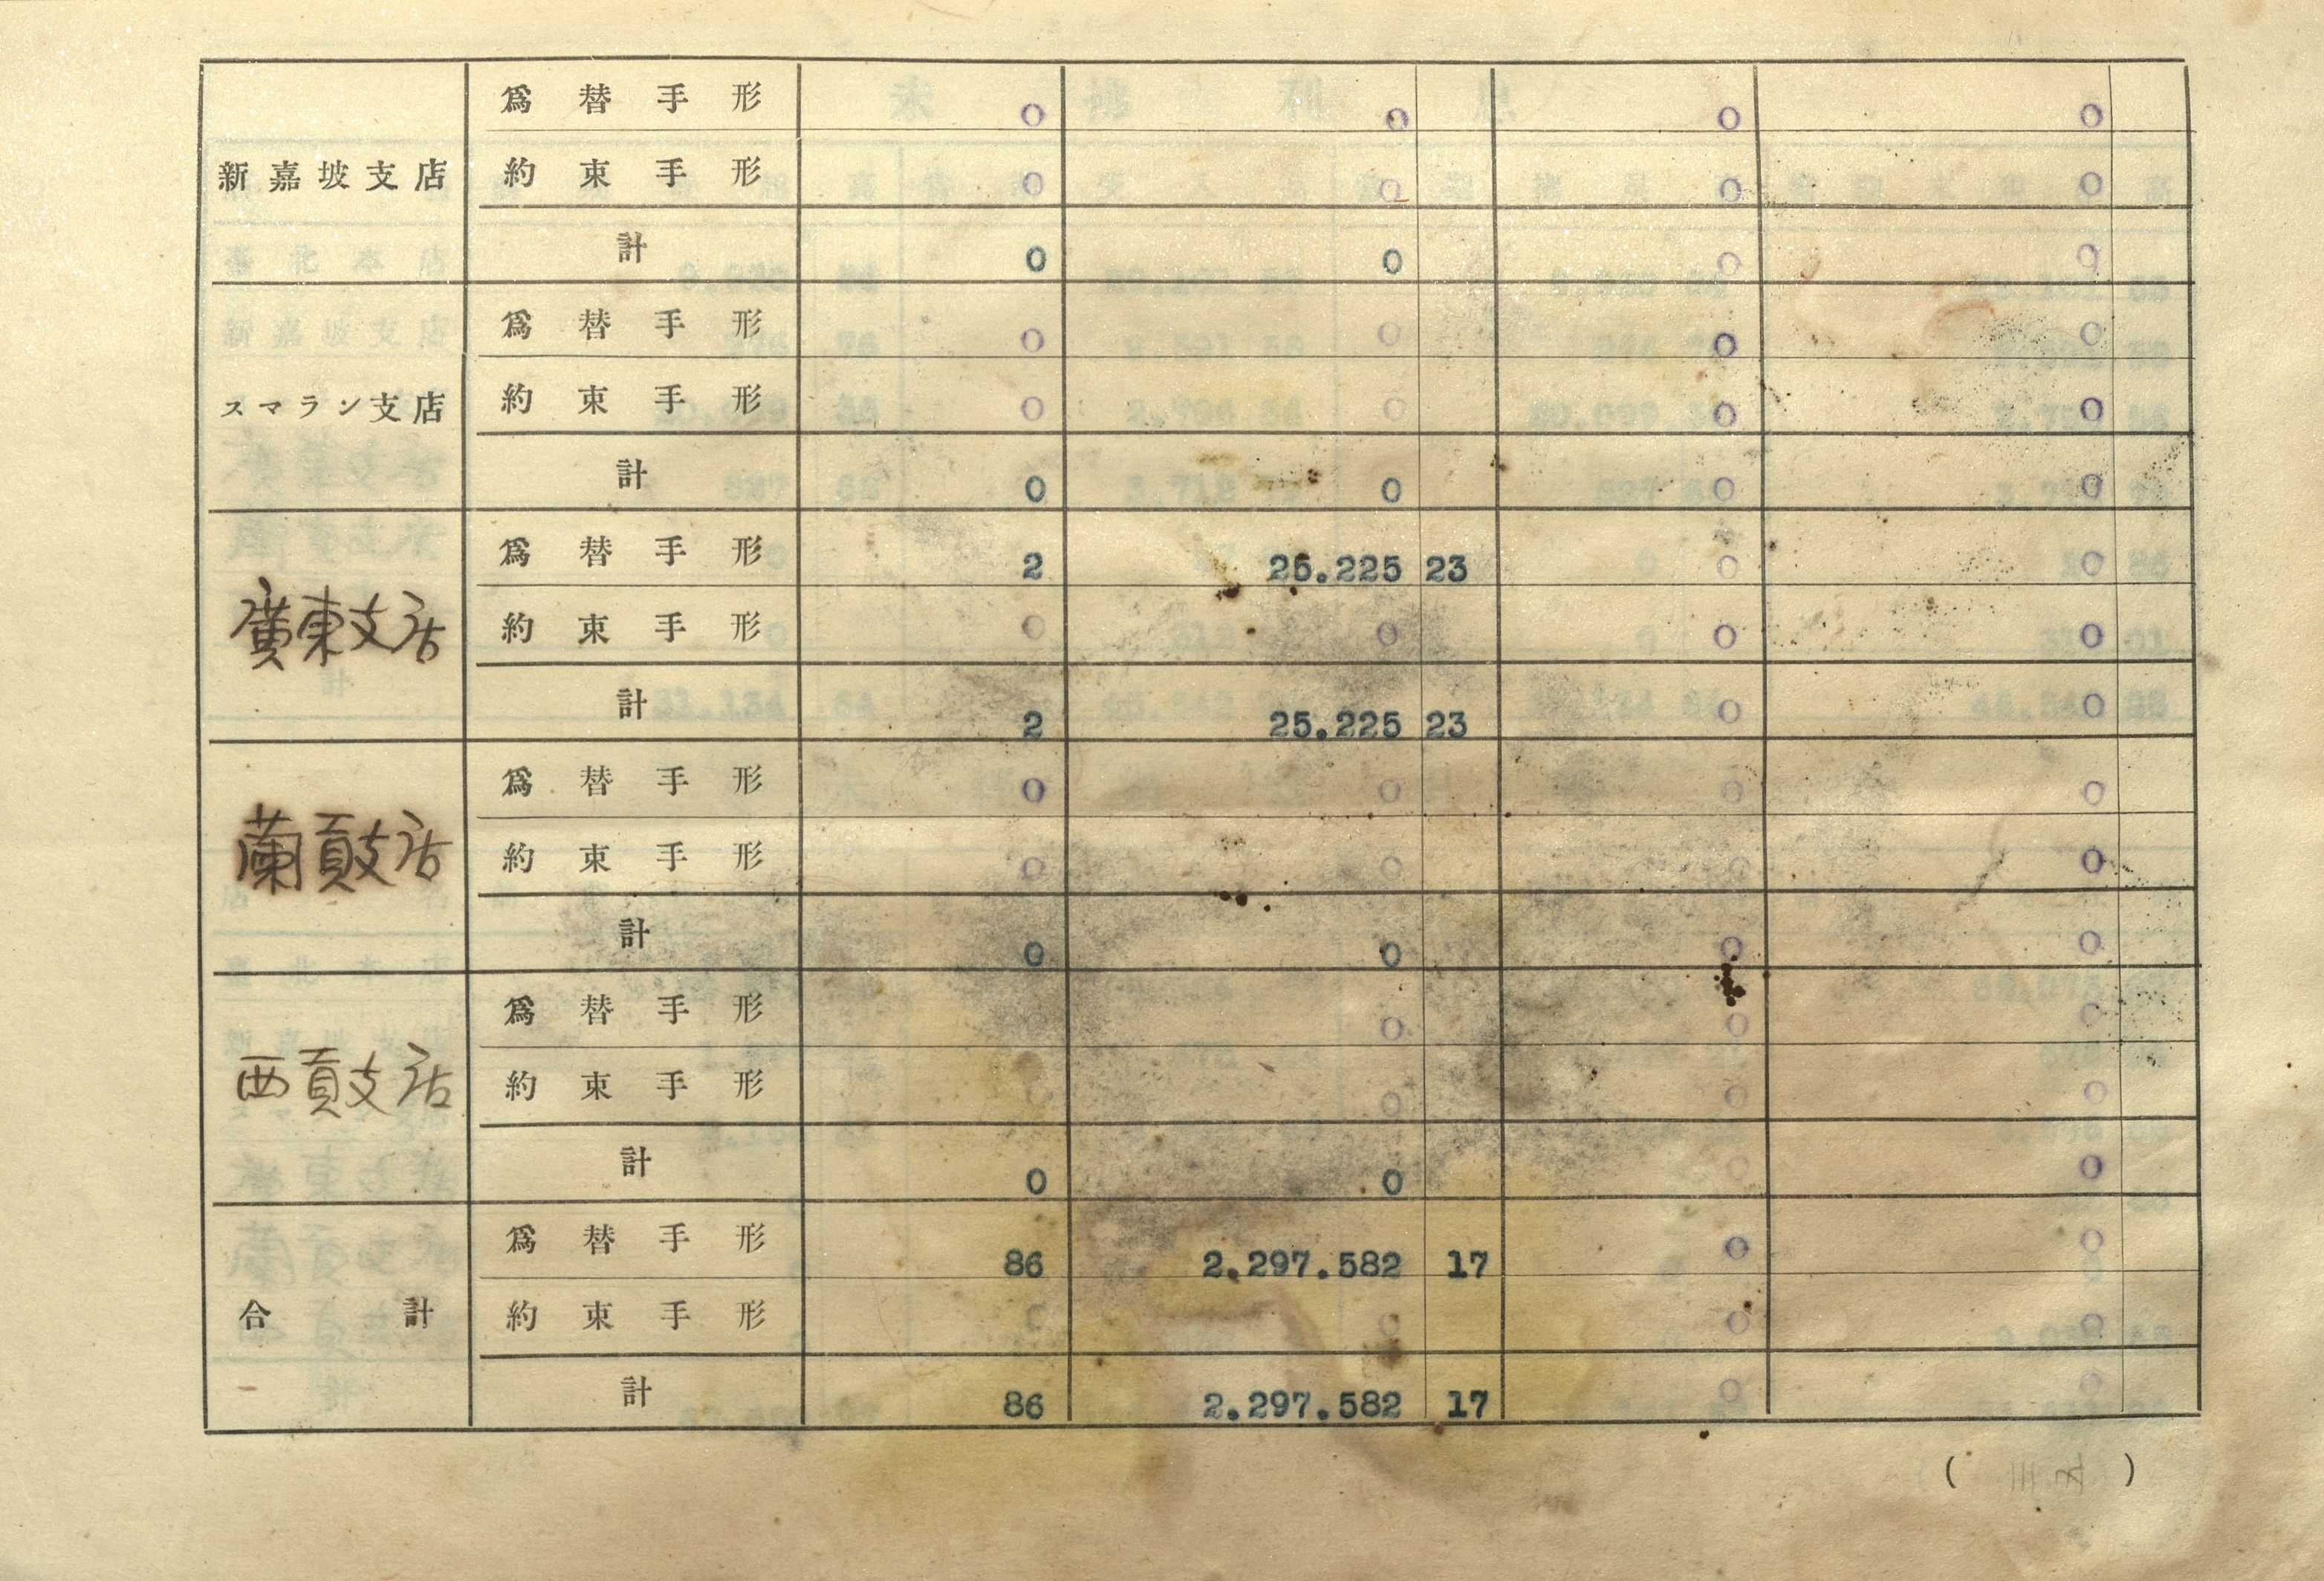 爲替手形 0 0 0 0
新嘉坡支店 約束手形 0 0 0 0
計 0 0 0 0
爲替手形 0 0 0 0
スマラン支店 約束手形 0 0 0 0
計 0 0 0 0
爲替手形 2 25.225 23 0 0
廣東支店 約束手形 0 0 0 0
計 2 25.225 23 0 0
爲替手形 0 0 0 0
蘭貢支店 約束手形 0 0 0 0
計 0 0 0 0
爲替手形 0 0 0
西貢支店 約束手形 0 0 0 0
計 0 0 0 0
爲替手形 86 2.297.582 17 0 0
合計 約束手形 0 0 0 0
計 86 2.297.582 17 0 0